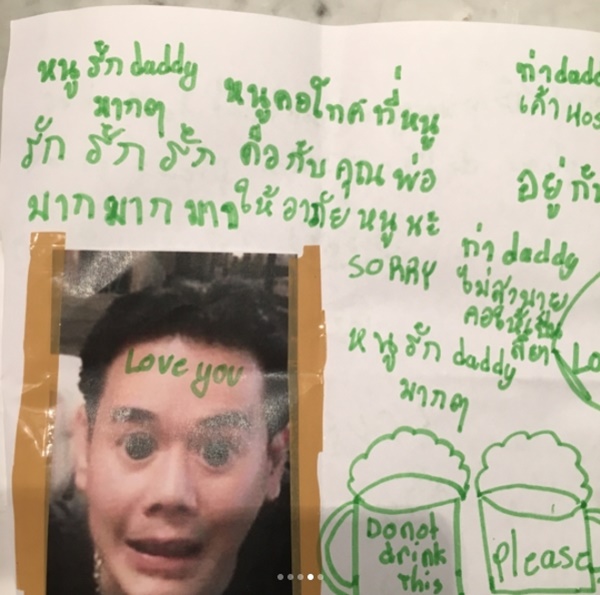 หนู รัก daddy
มากๆ
รัก รัก รัก
มาก มาก มาก
หนูคอโทศ ที่ หนู
ดื้อ กับ คุณ พ่อ
ให้ อาภัย หนู นะ
SORRY
ถ่า dadd
เค้า Hos
อยู่ กั
ถ่า daddy
ไม่สาบาย
หนู รัก daddy
มากๆ
Love you
Lo
Do not
drink
This
Please